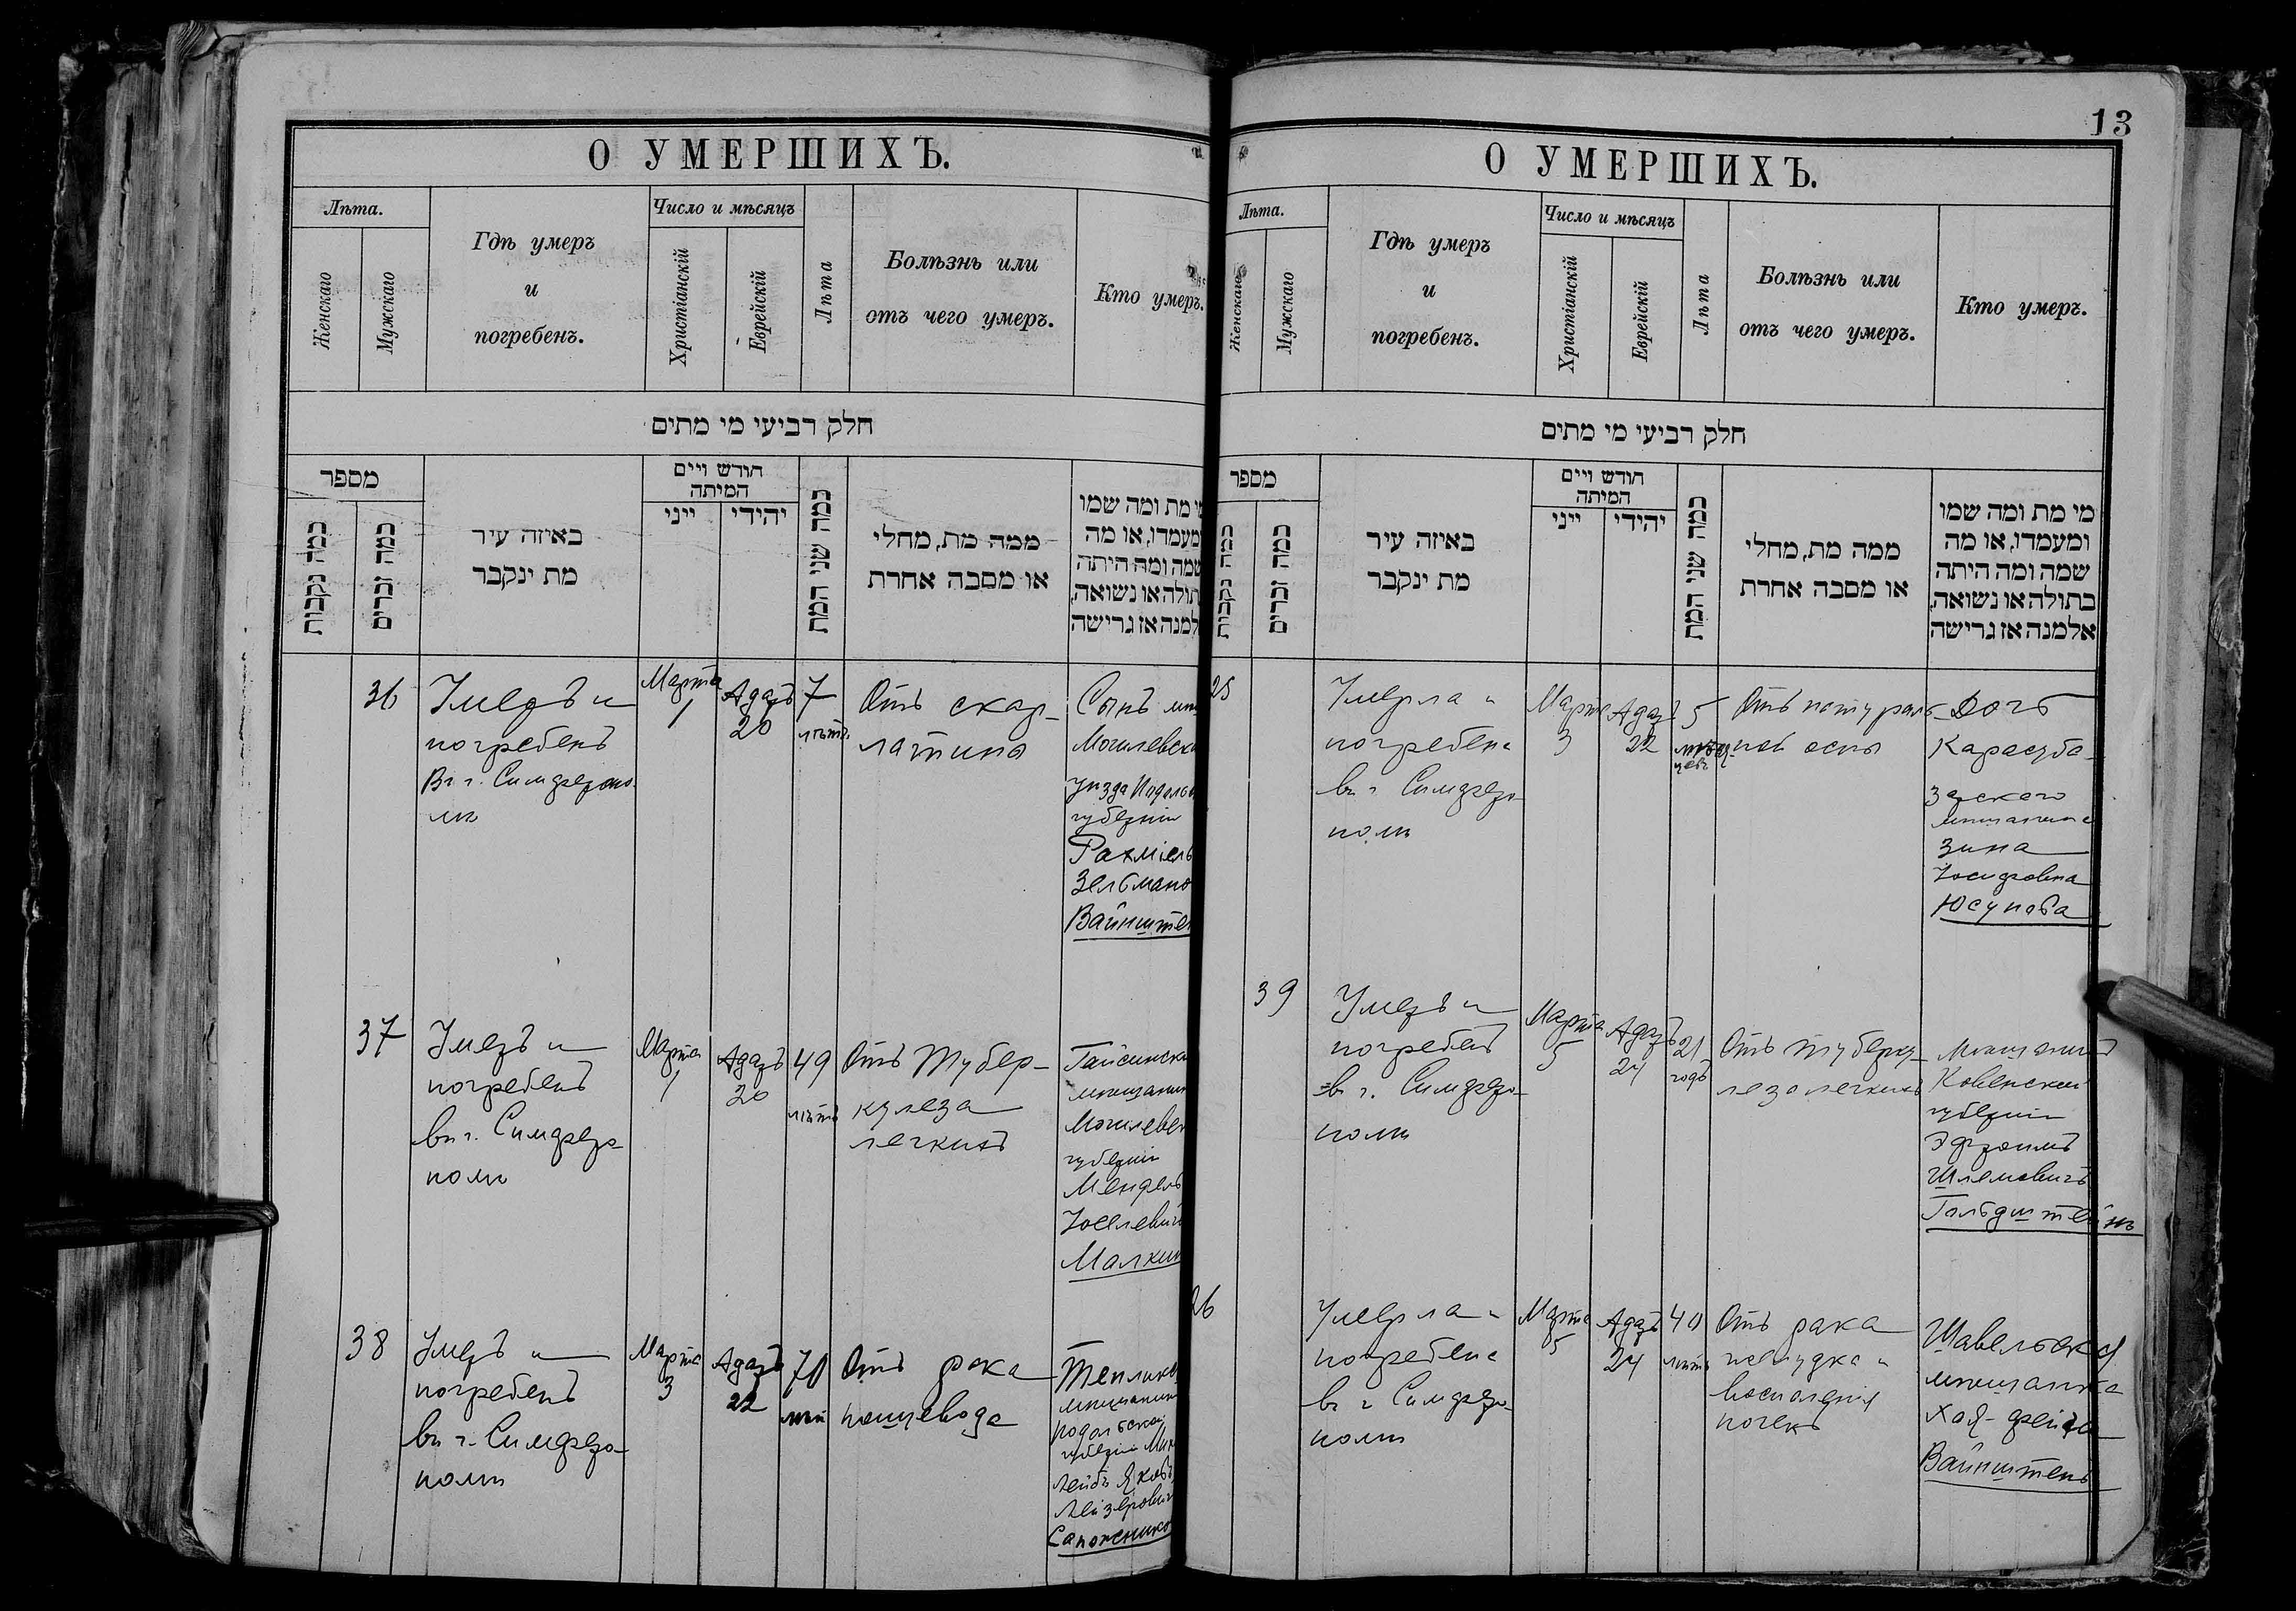 О УМЕРШИХЪ.
Лѣта.
Женскаго
Мужскаго
Гдѣ умеръ
и
погребенъ.
Число и мѣсяцъ
Христіанскій
Еврейскій
Лѣта
Болѣзнь или
отъ чего умеръ.
Кто умеръ.
חלק רביעי מי מתים
מספר
כמה נקבות
כמה זכרים
באיזה עיר
מת ינקבר
חודש ויים
המיתה
ייני
יהידי
כמה שני המת
ממה מת, מחלי
או מסבה אחרת
מי מת ומה שמו
ומעמדו, או מה
שמה ומה היתה
בתולה או נשואה,
אלמנה אז גרישה
36
Умеръ и
погребенъ
Въ г. Симферопо-
лѣ
Марта
1
Адаръ
20
7
лѣтъ
Отъ скар-
латины
Сынъ мѣщ
Могилевск
уѣзда Подольс
губерніи
Рахміель
Зельмано
Вайнштей
37
Умеръ и
погребенъ
въ г. Симферо-
полѣ
Марта
1
Адаръ
20
49
лѣтъ
Отъ тубер-
кулеза
легкихъ
Гайсинск
мѣщанин
Могилевск
губерніи
Мендель
Іоселевич
Малкин
38
Умеръ и
погребенъ
въ г. Симферо-
полѣ
Марта
3
Адаръ
22
70
лѣтъ
Отъ рака
пищевода
Тепликов
мѣщанин
Подольской
губерніи
Лейбъ Яковъ
Лейзерович
Сапожнико
13
О УМЕРШИХЪ.
Лѣта.
Женскаго
Мужскаго
Гдѣ умеръ
и
погребенъ.
Число и мѣсяцъ
Христіанскій
Еврейскій
Лѣта
Болѣзнь или
отъ чего умеръ.
Кто умеръ.
חלק רביעי מי מתים
מספר
כמה נקבות
כמה זכרים
באיזה עיר
מת ינקבר
חודש ויים
המיתה
ייני
יהידי
כמה שני המת
ממה מת, מחלי
או מסבה אחרת
מי מת ומה שמו
ומעמדו, או מה
שמה ומה היתה
בתולה או נשואה,
אלמנה אז גרישה
25
Умерла и
погребена
въ г. Симферо-
полѣ
Марта
3
Адаръ
22
5
мѣся-
цевъ
Отъ натураль-
ной оспы
Дочь
Карасуба-
зарскаго
мѣщанина
Зина
Іосифовна
Юсупова
39
Умеръ и
погребенъ
въ г. Симферо-
полѣ
Марта
5
Адаръ
24
21
годъ
Отъ туберку-
леза легкихъ
Мѣщанинъ
Ковенской
губерніи
Эфроимъ
Шлемовичъ
Гольдштейнъ
26
Умерла и
погребена
въ г Симферо-
полѣ
Марта
5
Адаръ
24
40
лѣтъ
Отъ рака
желудка и
воспаленія
почекъ
Шавельская
мѣщанка
Хая-фейга
Вайнштенъ